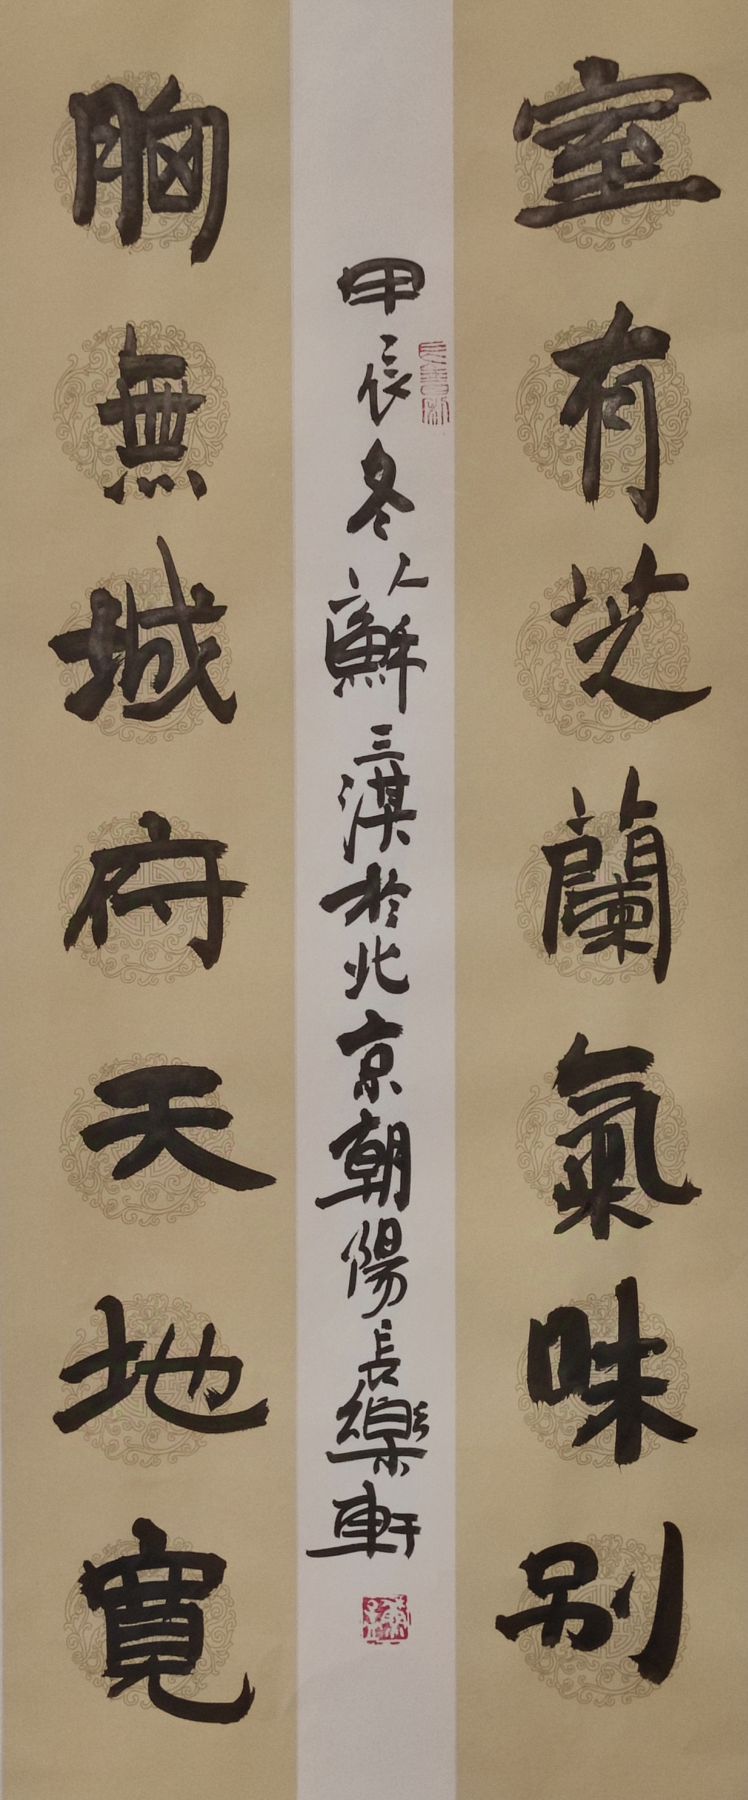 室有芝蘭氣味別
胸無城府天地寬
甲辰冬以蘇三淇於北京朝陽長樂軒